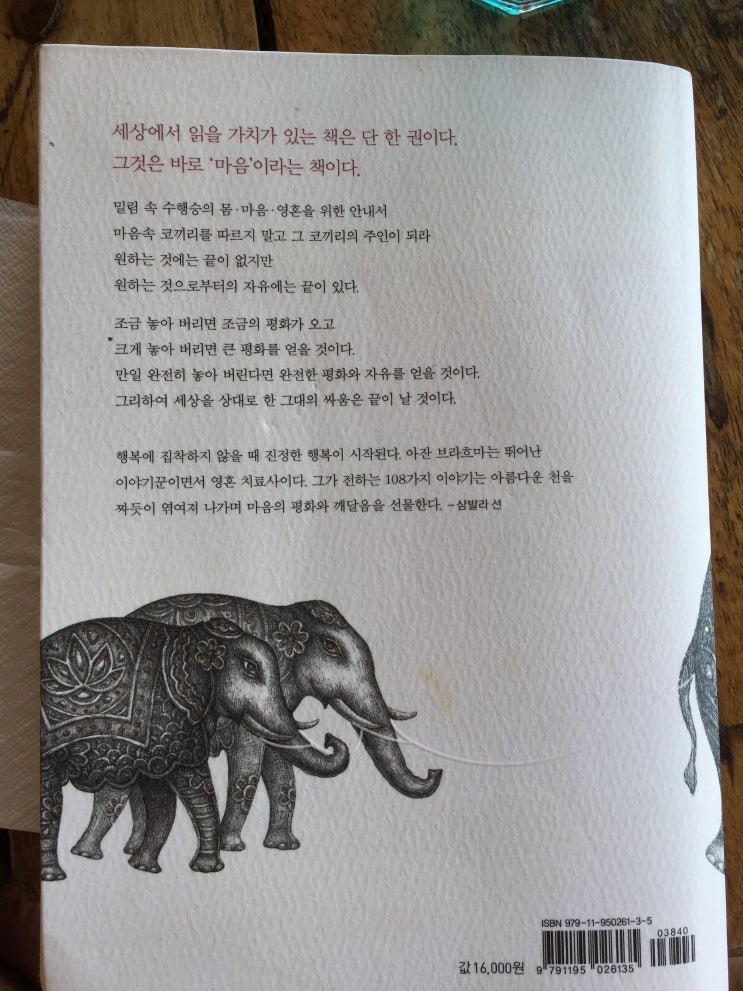 세상에서 읽을 가치가 있는 책은 단 한 권이다.
그것은 바로 '마음'이라는 책이다.
밀림 속 수행승의 몸·마음·영혼을 위한 안내서
마음속 코끼리를 따르지 말고 그 코끼리의 주인이 되라
원하는 것에는 끝이 없지만
원하는 것으로부터의 자유에는 끝이 있다.
조금 놓아 버리면 조금의 평화가 오고
크게 놓아 버리면 큰 평화를 얻을 것이다.
만일 완전히 놓아 버린다면 완전한 평화와 자유를 얻을 것이다.
그리하여 세상을 상대로 한 그대의 싸움은 끝이 날 것이다.
행복에 집착하지 않을 때 진정한 행복이 시작된다. 아잔 브라흐마는 뛰어난
이야기꾼이면서 영혼 치료사이다. 그가 전하는 108가지 이야기는 아름다운 천을
짜듯이 엮여져 나가며 마음의 평화와 깨달음을 선물한다. -샴발라 선
ISBN 979-11-950261-3-5
03840
값 16,000원
9 791195 026135